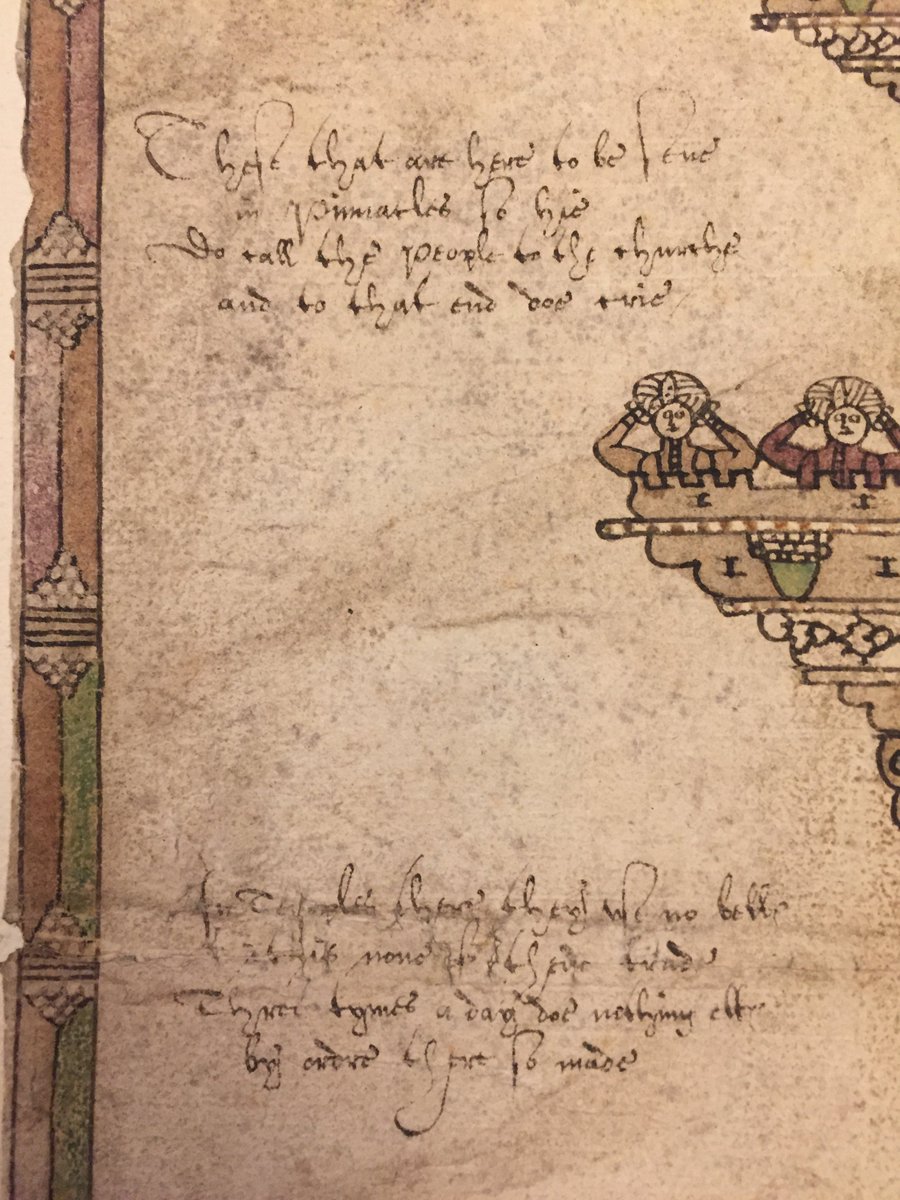 These that are here to be sene
in Pinnacles so hie
Do call the People to the churche
and to that end doe crie
In Temples there they use no bells
it is none of there trade
Three tymes a day doe nothing ells
by ordre there so made